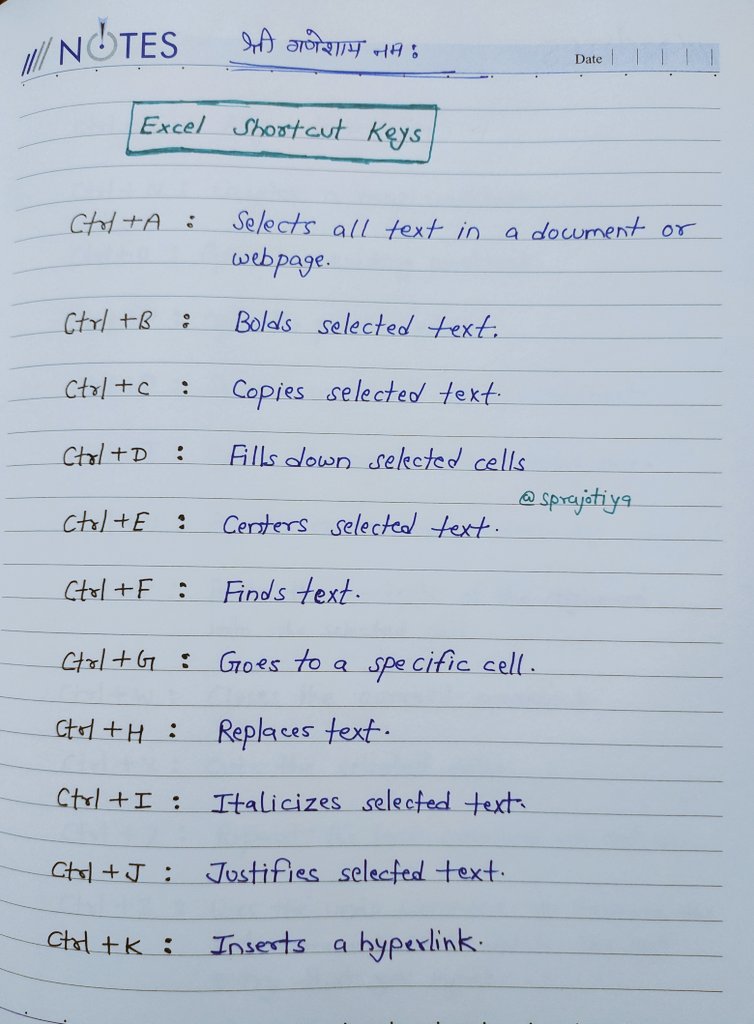 NOTES
श्री गणेशाय नमः
Date
Excel Shortcut Keys
Ctrl + A : Selects all text in a document or
webpage.
Ctrl + B : Bolds selected text.
Ctrl + C : Copies selected text.
Ctrl + D : Fills down selected cells
@sprajotiya
Ctrl + E : Centers selected text.
Ctrl + F : Finds text.
Ctrl + G : Goes to a specific cell.
Ctrl + H : Replaces text.
Ctrl + I : Italicizes selected text.
Ctrl + J : Justifies selected text.
Ctrl + K : Inserts a hyperlink.